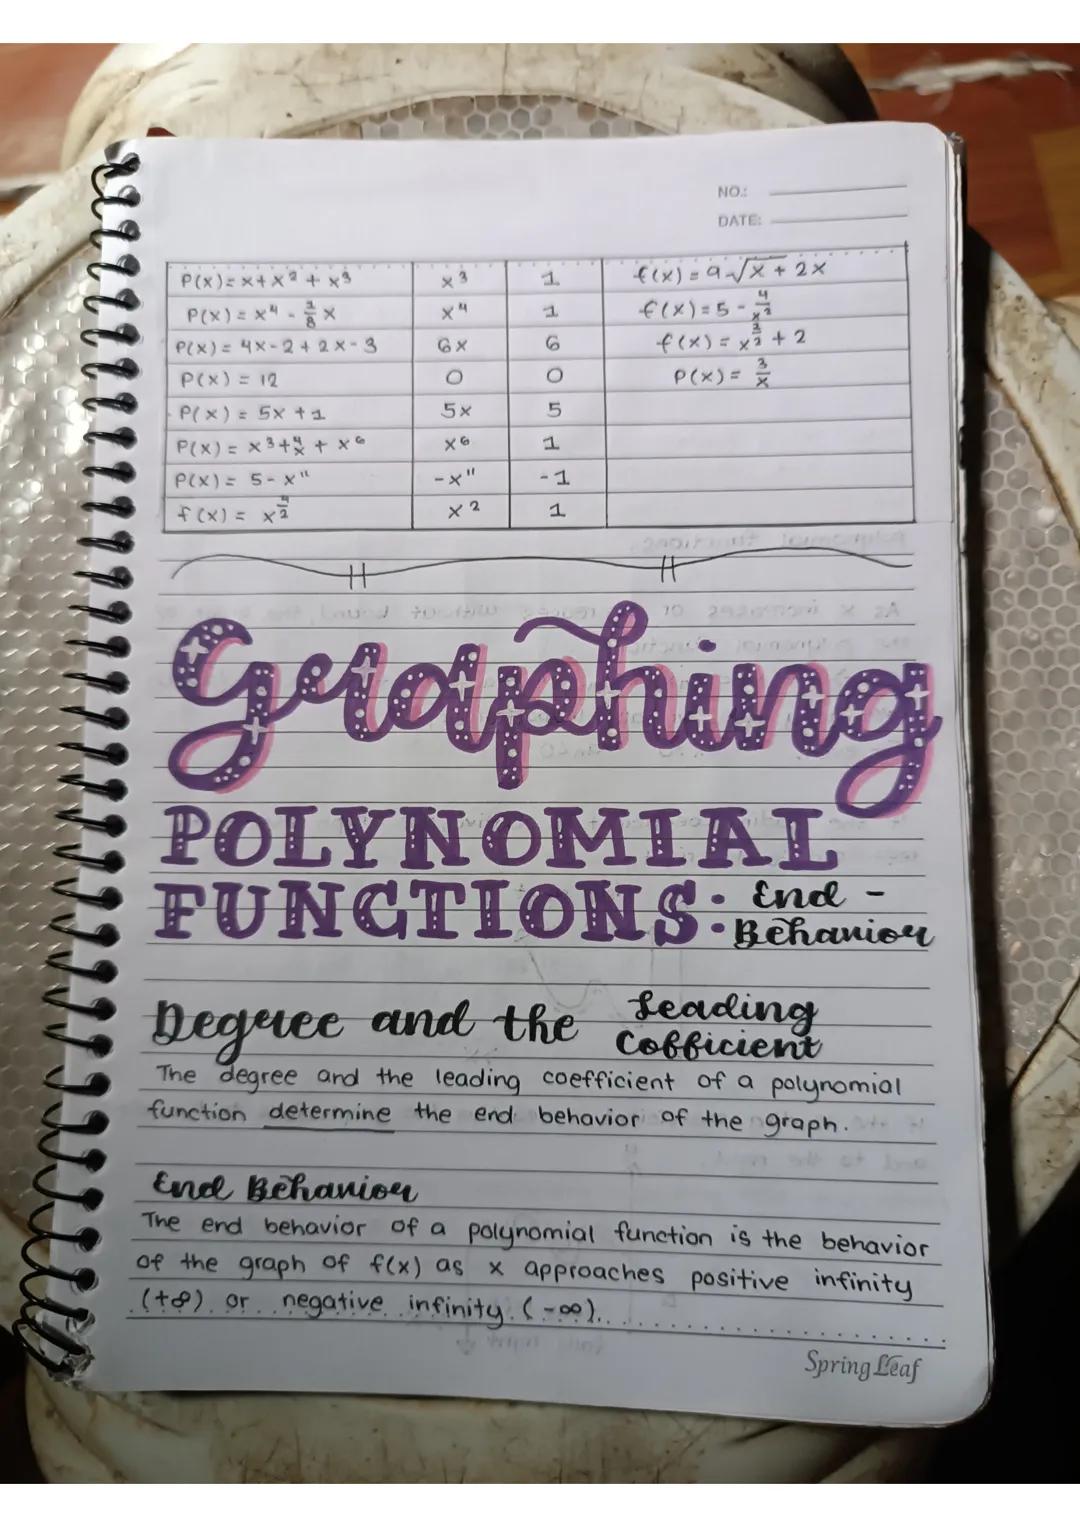 NO.:
DATE:
P(x)=x+x²+x³ x³ 1 f(x)=9√x+2x
P(x)=x⁴-⅜x x⁴ 1 f(x)=5-4/x²
P(x)=4x-2+2x-3 6x 6 f(x)=x^(3/2)+2
P(x)=12 0 0 P(x)=3/x
P(x)=5x+1 5x 5
P(x)=x³+4/x+x⁶ x⁶ 1
P(x)=5-x¹¹ -x¹¹ -1
f(x)=x^(4/2) x² 1
Graphing
POLYNOMIAL
FUNCTIONS: End-
Behavior
Degree and the Leading
Cofficient
The degree and the leading coefficient of a polynomial
function determine the end behavior of the graph.
End Behavior
The end behavior of a polynomial function is the behavior
of the graph of f(x) as x approaches positive infinity
(+∞) or negative infinity (-∞).
Spring Leaf